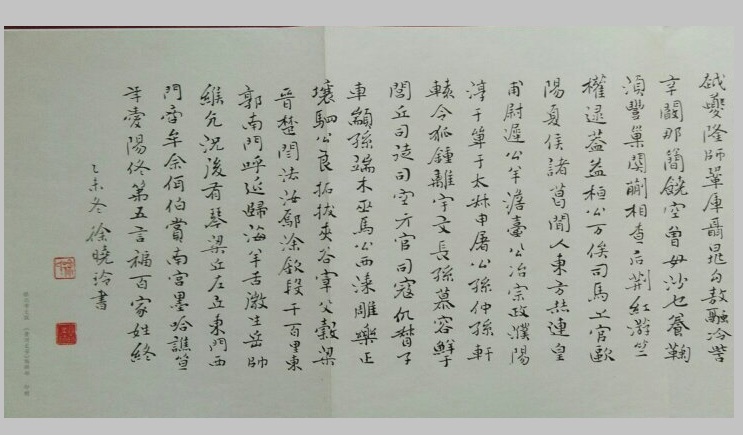 越夔隆師鞏厙聶晁勾敖融冷訾
辛闞那簡饒空曾毋沙乜養鞠
須豐巢關蒯相查后荊紅游竺
權逯蓋益桓公万俟司馬上官歐
陽夏侯諸葛聞人東方赫連皇
甫尉遲公羊澹臺公冶宗政濮陽
淳于單于太叔申屠公孫仲孫軒
轅令狐鍾離宇文長孫慕容鮮于
閭丘司徒司空亓官司寇仉督子
車顓孫端木巫馬公西漆雕樂正
壤駟公良拓拔夾谷宰父穀梁
晉楚閆法汝鄢涂欽段干百里東
郭南門呼延歸海羊舌微生岳帥
緱亢況後有琴梁丘左丘東門西
門商牟佘佴伯賞南宮墨哈譙笪
年愛陽佟第五言福百家姓終
乙未冬徐曉玲書